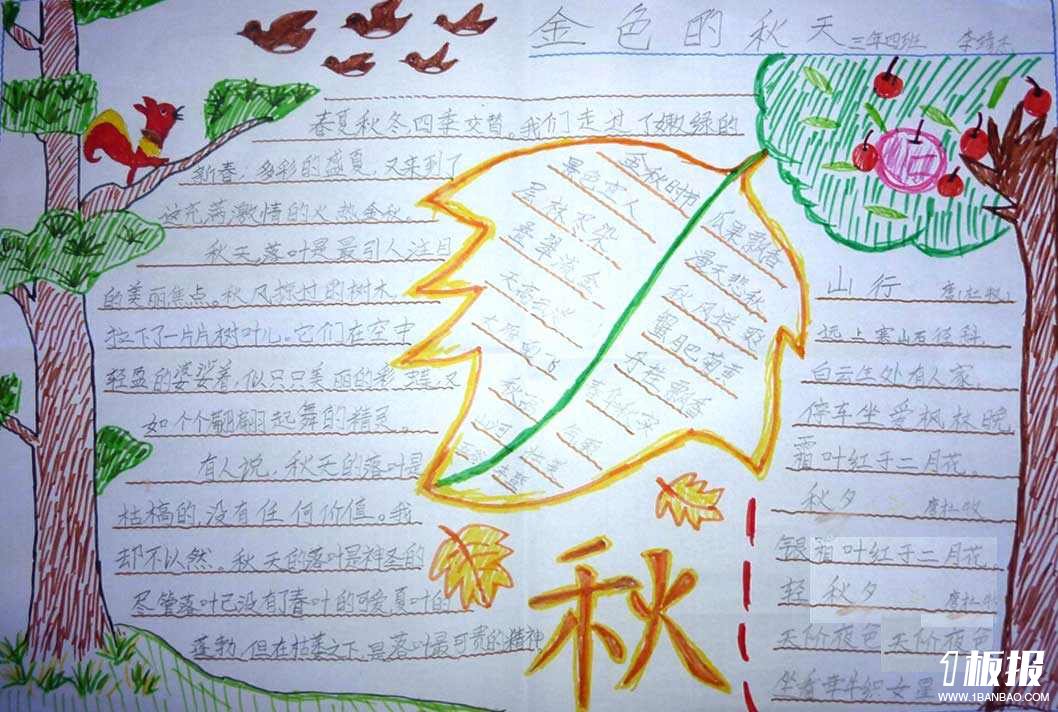 金色的秋天 三年四班 李靖杰
春夏秋冬四季交替。我们走过了嫩绿的
新春，多彩的盛夏，又来到了
这充满激情的火热金秋。
秋天，落叶是最引人注目
的美丽焦点。秋风掠过的树木，
拉下了一片片树叶儿。它们在空中
轻盈的婆娑着，似只只美丽的彩蝶，又
如个个翩翩起舞的精灵。
有人说，秋天的落叶是
枯槁的，没有任何价值。我
却不以然。秋天的落叶是神圣的
尽管落叶已没有了春叶的可爱夏叶的
蓬勃，但在枯萎之下，是落叶最可贵的精神
金秋时节
景色宜人
层林尽染
叠翠流金
天高云淡
大雁南飞
瓜果飘香
漫天
秋风送爽
蟹肥菊黄
丹桂飘香
春华秋实
秋
山行 唐：杜牧
远上寒山石径斜，
白云生处有人家。
停车坐爱枫林晚，
霜叶红于二月花。
秋夕 唐杜牧
银霜叶红于二月花。
轻 秋夕 唐杜牧
天阶夜色 天阶夜色
坐看牵牛织女星
1板报
WWW.1BANBAO.COM